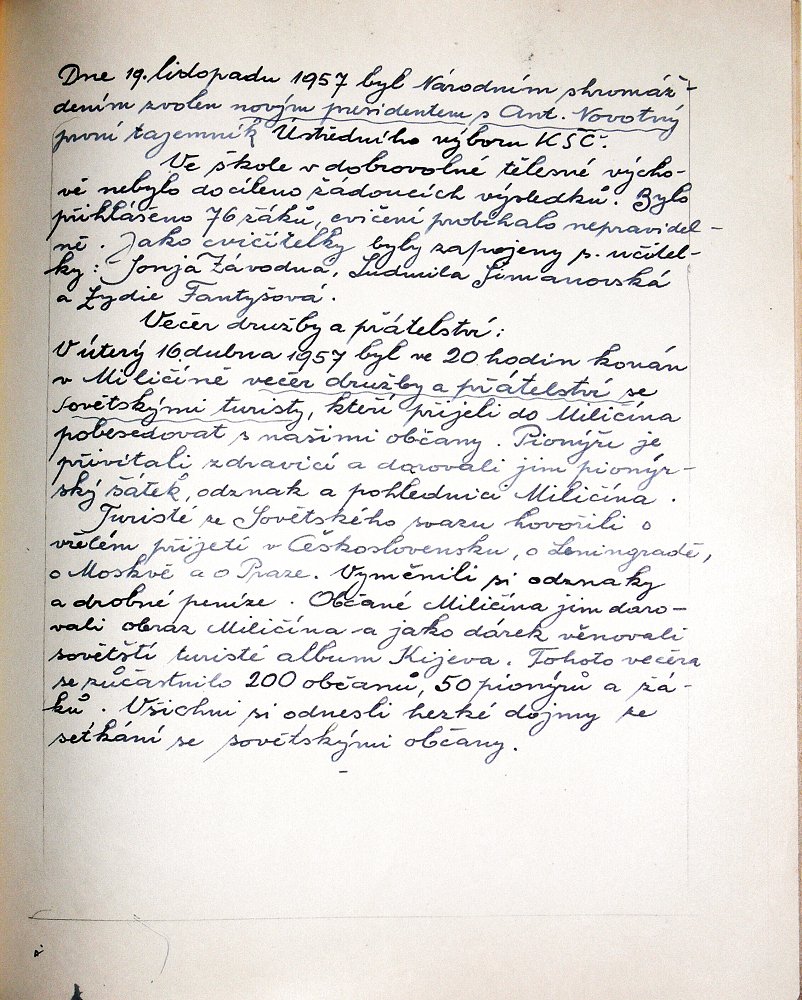 Dne 19. listopadu 1957 byl Národním shromáž-
děním zvolen novým presidentem s. Ant. Novotný
první tajemník Ústředního výboru KSČ.
Ve škole v dobrovolné tělesné výcho-
vě nebylo docíleno žádoucích výsledků. Bylo
přihlášeno 76 žáků, cvičení probíhalo nepravidel-
ně. Jako cvičitelky byly zapojeny p. učitel-
ky: Sonja Závodná, Ludmila Šimanovská
a Lydie Fantyšová.
Večer družby a přátelství:
V úterý 16. dubna 1957 byl ve 20 hodin konán
v Miličíně večer družby a přátelství se
sovětskými turisty, kteří přijeli do Miličína
pobesedovat s našimi občany. Pionýři je
přivítali zdravicí a darovali jim pionýr-
ský šátek, odznak a pohlednici Miličína.
Turisté ze Sovětského svazu hovořili o
vřelém přijetí v Československu, o Leningradě,
o Moskvě a o Praze. Vyměnili si odznaky
a drobné peníze. Občané Miličína jim daro-
vali obraz Miličína a jako dárek věnovali
sovětští turisté album Kijeva. Tohoto večera
se zúčastnilo 200 občanů, 50 pionýrů a žá-
ků. Všichni si odnesli hezké dojmy ze
setkání se sovětskými občany.